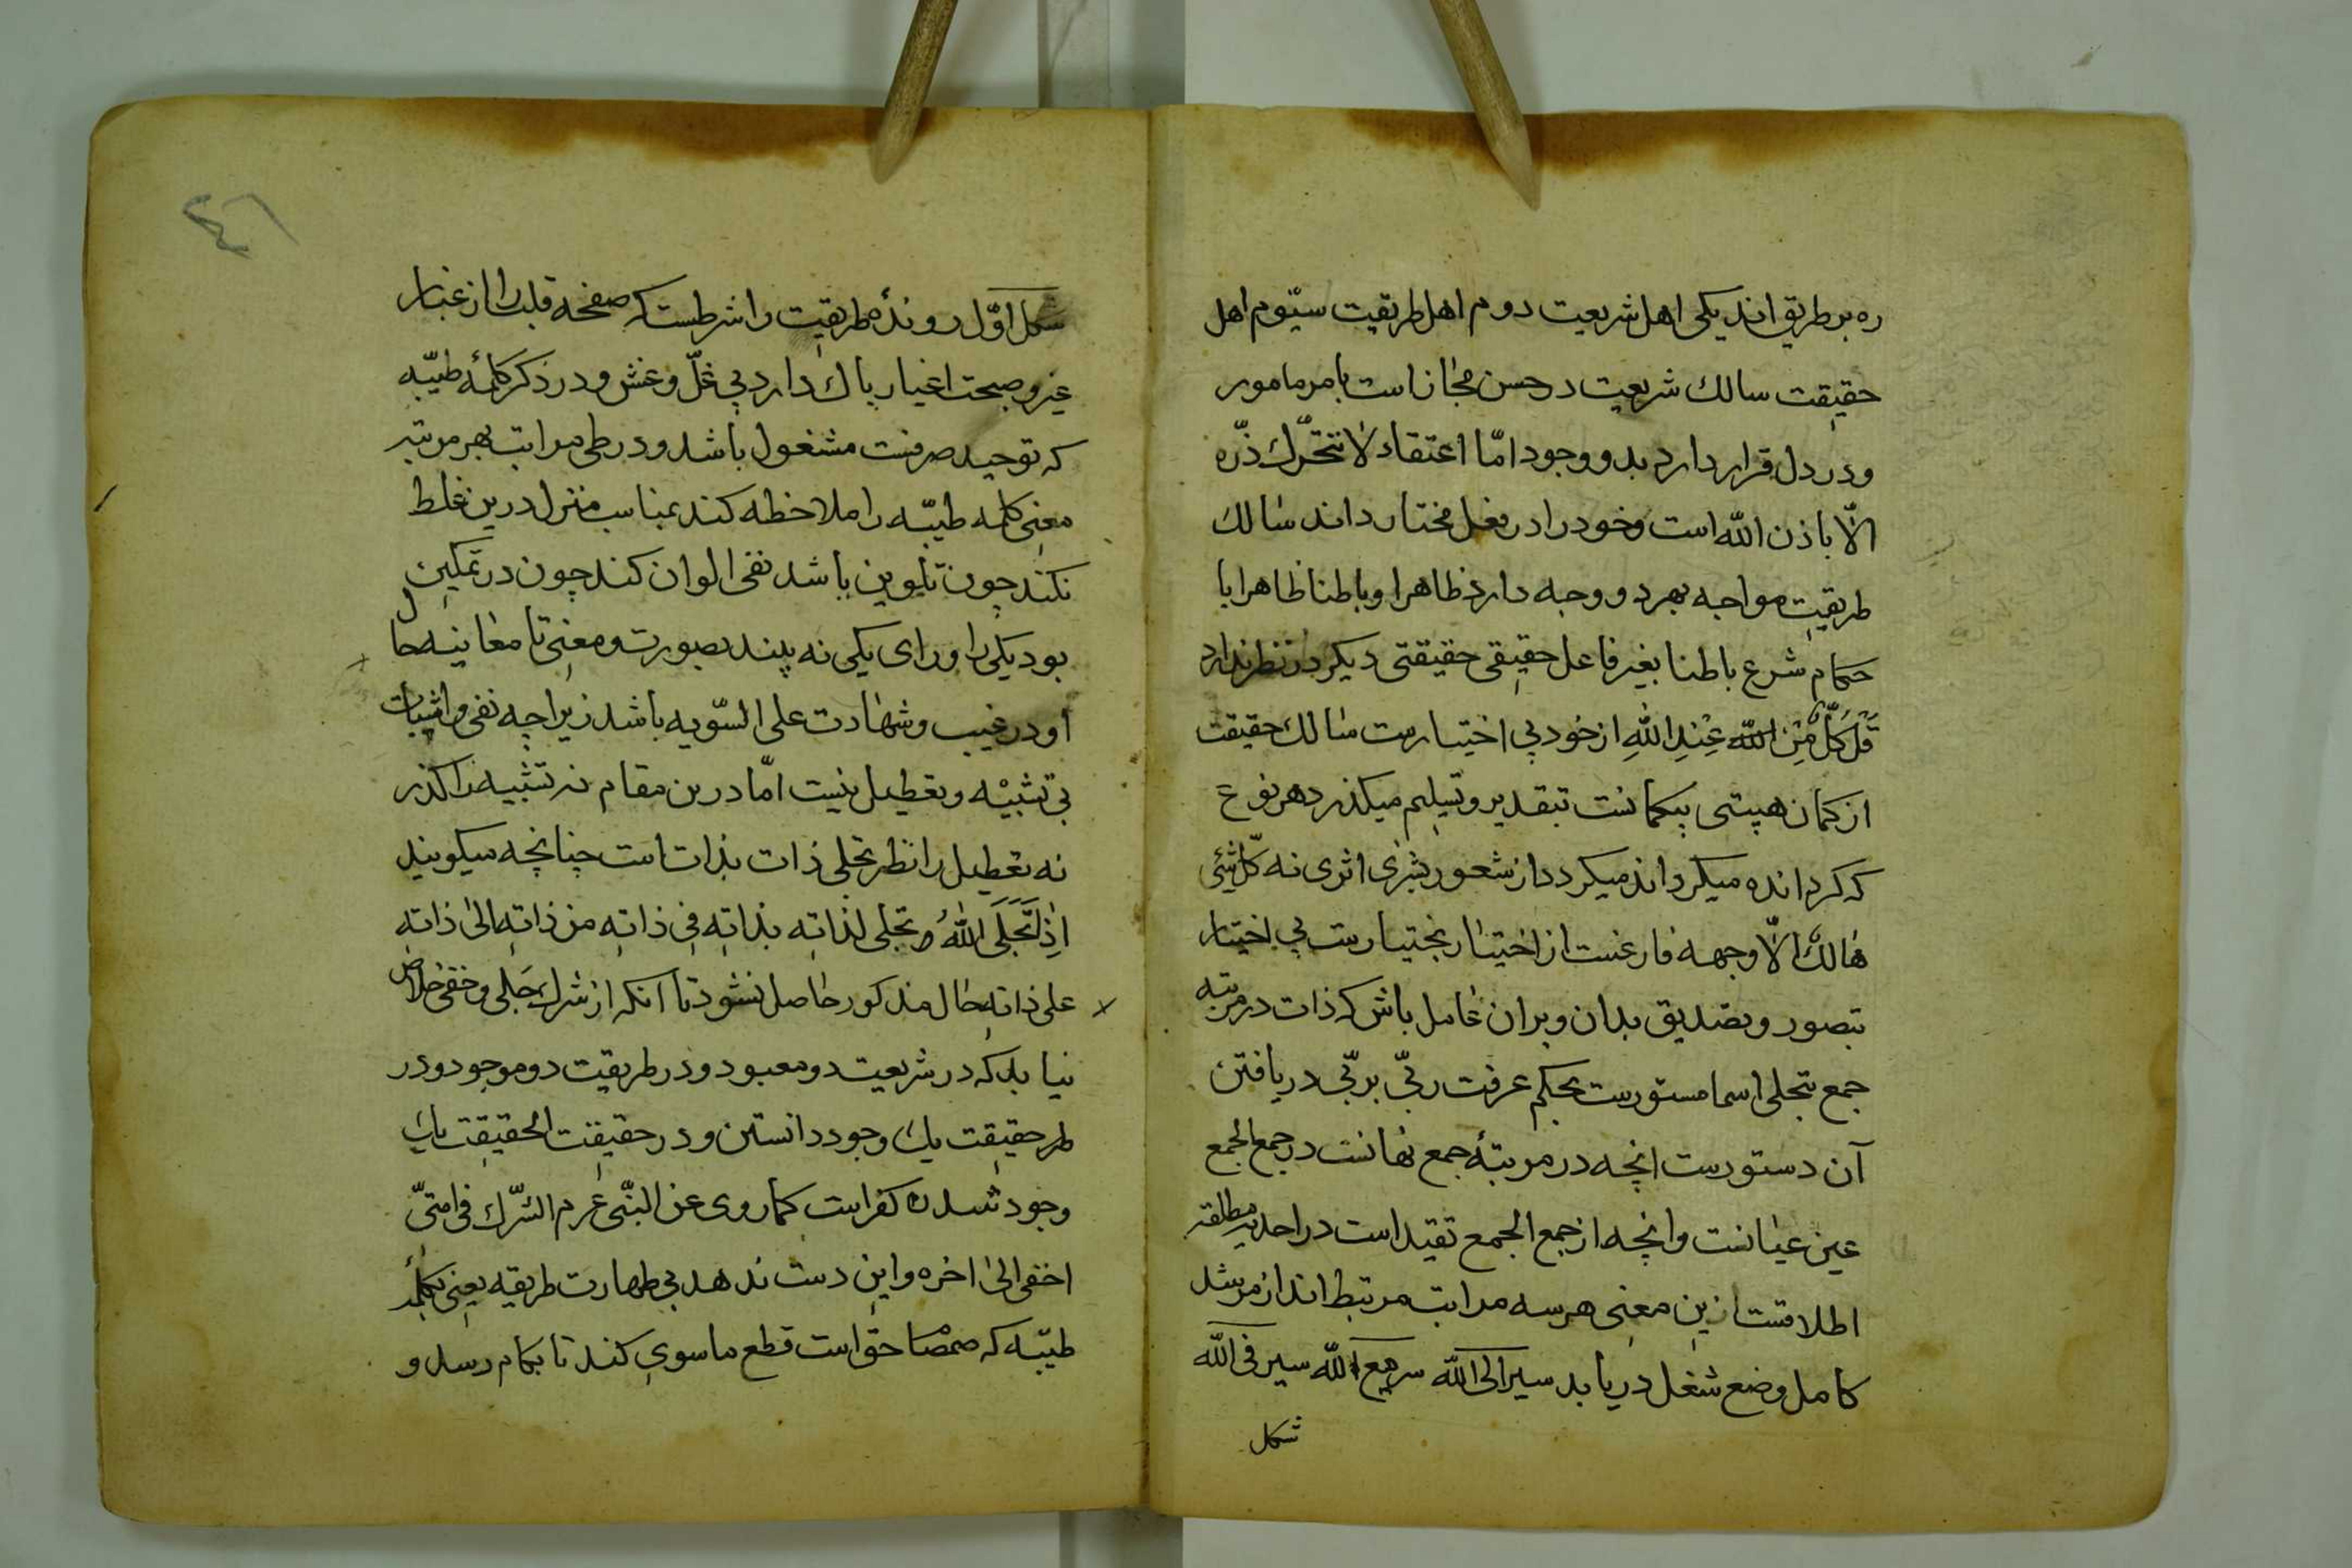 ره بر طریق اند یکی اهل شریعت دوم اهل طریقت سیّوم اهل
حقیقت سالک شریعت در حسن مجازاست بامر مامور
و در دل قرار دارد بدو وجود امّا اعتقاد لا تتحرّک ذرّه
الّا باذن اللّه است وخود را در فعل مختار داند سالک
طریقت مواجه بهر دو وجه دارد ظاهرا و باطنا ظاهرا با
حکام شرع باطنا بغیر فاعل حقیقی حقیقتی دیکر در نظر ندارد
قُلْ کُلٌّ مِّنْ عِنْدِ اللّهِ از خود بی اختیارست سالک حقیقت
از کمان هیستی بیکمانست تبقدیر و تسلیم میکذرد هر نوع
که کردانده میکرداند میکردد از شعور بشری اثری نه کلّ شیٔ
هالک الّا وجهه فارغست از اختیار بختیارست بی اختیار
بتصور و بصدیق بدان و بران عامل باش که ذات در مرتبه
جمع بتجلی اسما مستورست بحکم عرفت ربّی بربّی دریافتن
آن دستورست انچه در مرتبهٔ جمع نهانست در جمع الجمع
عین عیانست وانچه از جمع الجمع تقید است در احدیه مطلقه
اطلاقست ازین معنی هر سه مراتب مرتبط اند از مرشد
کامل وضع شغل دریابد سیر الی اللّه سیر مع اللّه سیر فی اللّه
شکل
۴۶
شکل اوّل روندهٔ طریقت را شرطست که صفحه قلب را از غبار
غیر و صبحت اغیار پاک دارد بی غلّ و غش و در ذکر کلمهٔ طیّبه
که توحید صرفست مشغول باشد و در طی مراتب بهر مرتبه
معنی کلمه طیّبه را ملاحظه کند بمناسب منزل درین غلط
نکند چون تلوین باشد نفی الوان کند چون در تمکین
بود یکی را ورای یکی نه بیند بصورت و معنی تا معاینه حال
او در غیب و شهادت علی السّویه باشد زیراچه نفی و اثبات
بی تشبیه و تعطیل نیست امّا درین مقام نه تشبیه را کذر
نه تعطیل را نظر تجلی ذات بذات است چنانچه میکویند
اذا تَجَلَی اللّهُ تجلی لذاته بذاته فی ذاته من ذاته الیٰ ذاته
علی ذاته حال مذکور حاصل نشود تا انکه از شرک جَلی و خفی خلاص
نیابد که در شریعت دو معبود و در طریقت دو موجود و در
طر حقیقت یک وجود دانستن و در حقیقت الحقیقت یک
وجود شدن کفر است کما روی عن النبّی عم الشّرک فی امتیّ
اخفی الیٰ اخره واین دست ندهد بی طهارت طریقه یعنی بکلمهٔ
طیّبه که صمصام حق است قطع ماسوی کند تا بکام رسد و